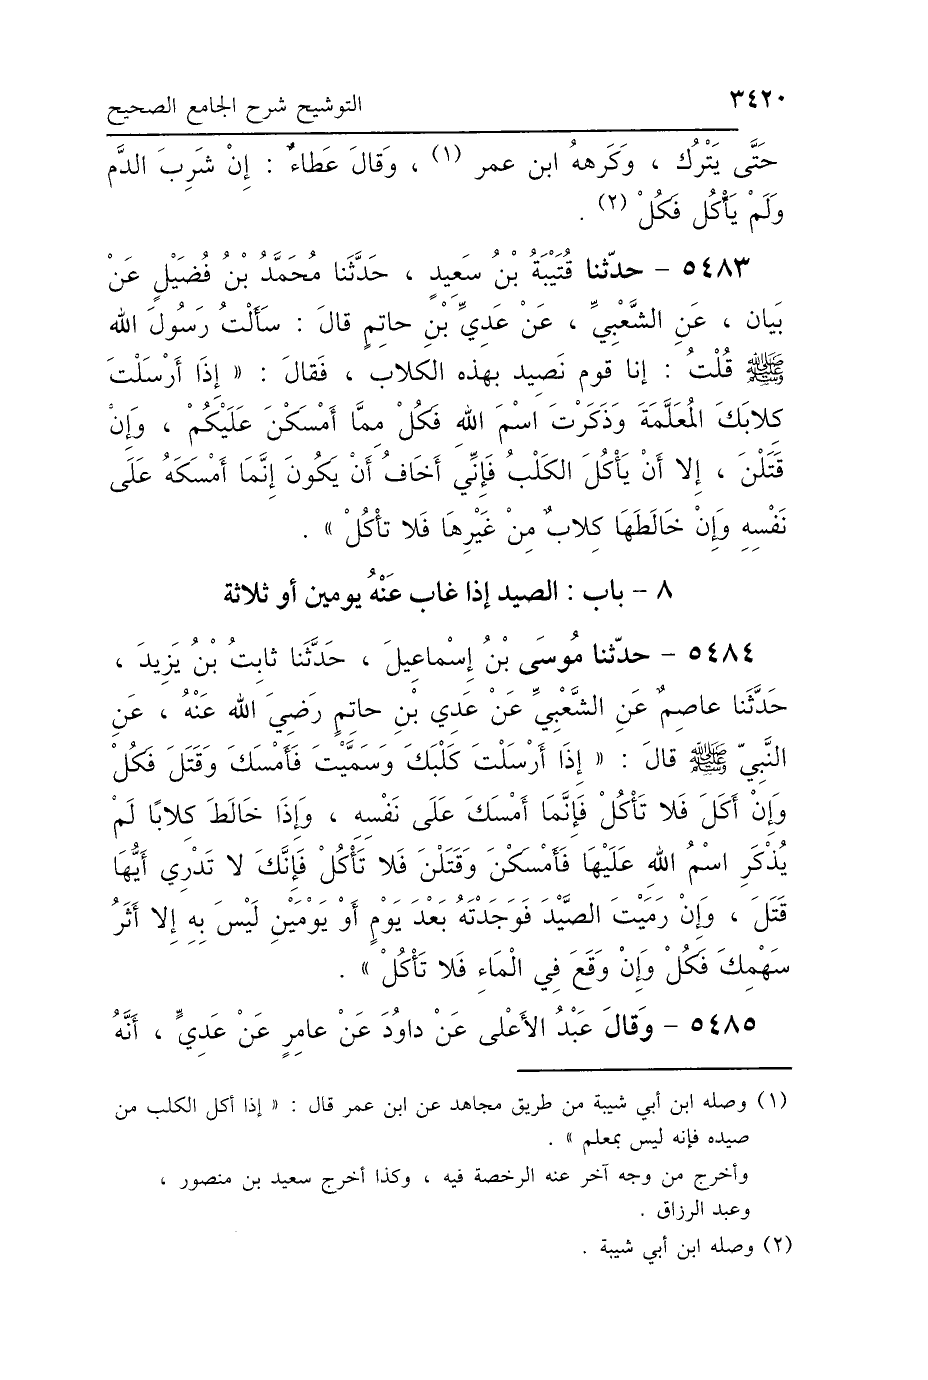 ٣٤٢٠ التوشيح شرح الجامع الصحيح
حَتَّى يَتْرُك ، وَكَرَههُ ابن عمر (١) ، وَقَالَ عَطَاءٌ : إِنْ شَرِبَ الدَّم
وَلَمْ يَأْكُل فَكُلْ (٢) .
٥٤٨٣ – حدّثنا قُتَيْبَةُ بْنُ سَعِيدٍ ، حَدَّثَنا مُحَمَّدُ بْنُ فُضَيْلٍ عَنْ
بَيَان ، عَنِ الشَّعْبِيِّ ، عَنْ عَدِيِّ بْنِ حاتِمٍ قالَ : سَأَلْتُ رَسُولَ الله
ﷺ قُلْتُ : إنا قوم نَصِيد بهذه الكلاب ، فَقالَ : « إِذَا أَرْسَلْتَ
كلابَكَ الْمُعَلَّمَةَ وَذَكَرْتَ اسْمَ اللهِ فَكُلْ مِمَّا أَمْسَكْنَ عَلَيْكُمْ ، وَإِنْ
قَتَلْنَ ، إلا أَنْ يَأْكُلَ الكَلْبُ فَإِنِّي أَخَافُ أَنْ يَكُونَ إِنَّمَا أَمْسَكَهُ عَلَى
نَفْسِهِ وَإِنْ خَالَطَهَا كِلابٌ مِنْ غَيْرِهَا فَلا تأْكُلْ » .
٨ – باب : الصيد إذا غاب عَنْهُ يومين أو ثلاثة
٥٤٨٤ – حدّثنا مُوسَى بْنُ إِسْماعِيلَ ، حَدَّثَنا ثابتُ بْنُ يَزِيدَ ،
حَدَّثَنا عاصِمٌ عَنِ الشَّعْبِيِّ عَنْ عَدِي بْنِ حاتِمٍ رَضِيَ الله عَنْهُ ، عَنِ
النَّبِيّ ﷺ قالَ : « إِذَا أَرْسَلْتَ كَلْبَكَ وَسَمَّيْتَ فَأَمْسَكَ وَقَتَلَ فَكُلْ
وَإِنْ أَكَلَ فَلا تَأْكُلْ فَإِنَّمَا أَمْسَكَ عَلَى نَفْسِهِ ، وَإِذَا خَالَطَ كلابًا لَمْ
يُذْكَرِ اسْمُ اللهِ عَلَيْهَا فَأَمْسَكْنَ وَقَتَلْنَ فَلا تَأْكُلْ فَإِنَّكَ لا تَدْرِي أَيُّهَا
قَتَلَ ، وَإِنْ رَمَيْتَ الصَّيْدَ فَوَجَدْتَهُ بَعْدَ يَوْمٍ أَوْ يَوْمَيْنِ لَيْسَ بِهِ إلا أَثَرُ
سَهْمِكَ فَكُلْ وَإِنْ وَقَعَ فِي الْمَاءِ فَلا تَأْكُلْ » .
٥٤٨٥ – وَقالَ عَبْدُ الأَعْلى عَنْ داوُدَ عَنْ عامِرٍ عَنْ عَدِيٍّ ، أَنَّهُ
(١) وصله ابن أبي شيبة من طريق مجاهد عن ابن عمر قال : « إذا أكل الكلب من
صيده فإنه ليس بمعلم » .
وأخرج من وجه آخر عنه الرخصة فيه ، وكذا أخرج سعيد بن منصور ،
وعبد الرزاق .
(٢) وصله ابن أبي شيبة .